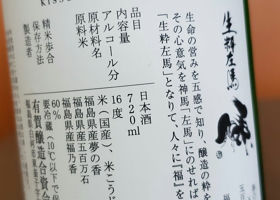 生粋左馬
生命の営みを五感で知り、醸造の粋を
その心意気を神馬「左馬」にのせれば
「生粋左馬」となりて、人々に「福」を
品目 日本酒
内容量 720ml
アルコール分 16度
原材料名 米(国産)、米こうじ
原料米 福島県産夢の香
福島県産五百万石
福島県産福乃香
精米歩合
保存方法 要冷蔵(10℃以下で保
製造者 有賀醸造合資会